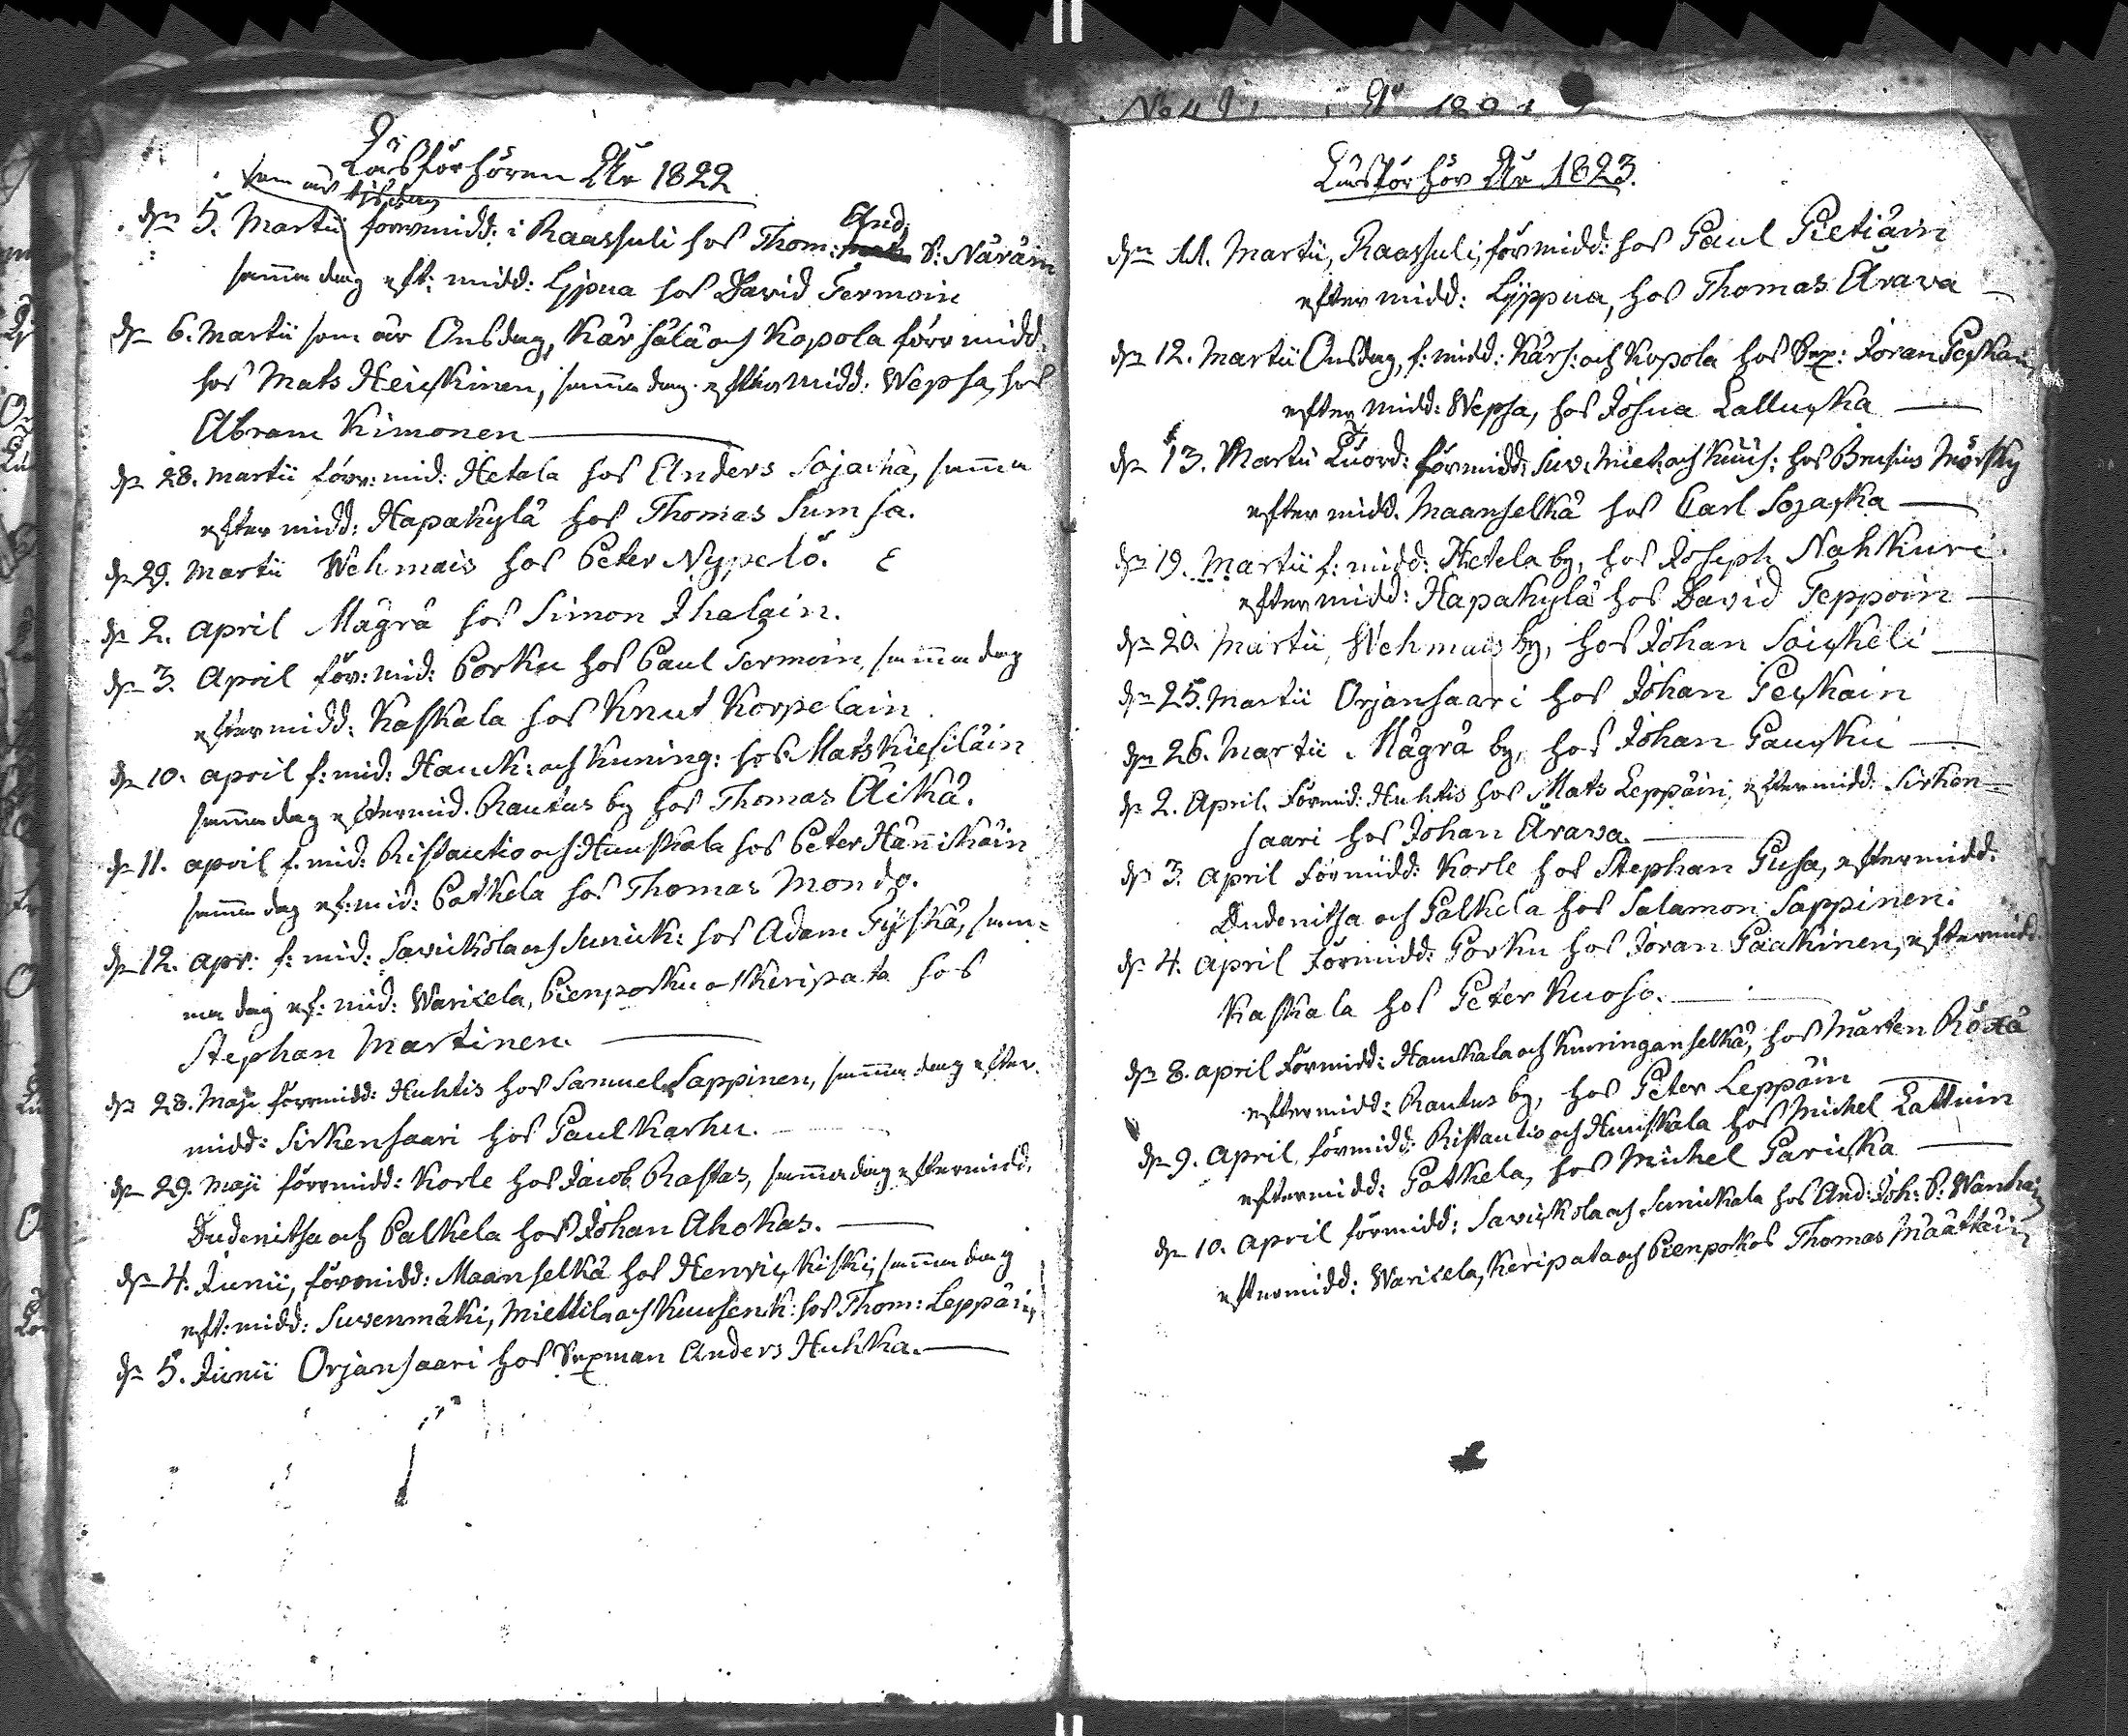 Läsförhören År 1822
som är tisdag
dn 5. Martii forrmidd: i Raassuli hos Thom: And. S: Näräin
samma dag eft: midd: Lyjpua hos David Termoin
dn 6. Martii som är Onsdag, Kärsälä och Kopola förr midd.
hos Mats Heiskinen, samma dag efter midd: Wepsa, hos
Abram Kimonen
dn 28. Martii förr: mid: Hetela hos Anders Sojacka, samma
efter midd: Hapakylä hos Thomas Sumsa.
dn 29. Martii Wehmais hos Peter Nypelö.
dn 2. April Mägrä hos Simon Ihalain.
dn 3. April för: mid: Porku hos Paul Termoin, samma dag
eftermidd: Kaskala hos Knut Korpelain
dn 10. april f: mid: Hauck: och Kuning: hos Mats Kiesiläin
samma dag eftermid. Rautus by hos Thomas Äikä.
dn 11. april f. mid: Ristautio och Huuskala hos Peter Hännikäin
samma dag ef: mid: Patkela hos Thomas Mondo.
dn 12. apr: f: mid: Savickola och Sunick: hos Adam Tyskä, sam=
ma dag ef: mid: Waricela, Pienporku och Keripata hos
Stephan Martinen.
dn 28. Maji förrmidd: Huhtis hos Samuel Sappinen, samma dag efter.
midd: Sirkensaari hos Paul Karhu.
dn 29. Maji förrmidd: Korle hos Jacob Rastas, samma dag eftermidd,
Dudenitsa och Palkela hos Johan Ahokas.
dn 4. Junii, förmidd: Maanselkä hos Henric Kiski, samma dag
eft: midd: Suvenmäki, Miettilä och Kuusenk: hos Thom: Leppäin,
dn 5. Junii Orjansaari hos Sexman Anders Huhka.
Läsförhör År 1823.
dn 11. Martii, Raassuli, förmidd: hos Paul Pietiäin
efter midd: Lyppua, hos Thomas Ärava
dn 12. Martii Onsdag, f: midd: Kärs: och Kopola hos Sex: Jöran Peskain,
efter midd: Wepsa, hos Josua Lallucka
dn 13. Martii Tuord: förmidd: Suv: Miet: och Kuus: hos Brusius Mörsky
efter midd. Maanselkä hos Carl Sojacka
dn 19. Martii f: midd: Hetela by, hos Joseph Nahkuri.
efter midd: Hapakylä hos David Teppoin
dn 20. Martii, Wehmais by, hos Johan Soickeli
dn 25. Martii Orjansaari hos Johan Peskain
dn 26. Martii Mägrä by, hos Johan Paucku
dn 2. April. Förmid: Huhtis hos Mats Leppäin, eftermidd: Sirken=
saari hos Johan Ärava.
dn 3. April Förmidd: Korle hos Stephan Pusa, eftermidd.
Dudenitsa och Palkela hos Salamon Sappinen.
dn 4. April Förmidd: Porku hos Jöran Paakinen, eftermidd
Kaskala hos Peter Kuosa.
dn 8. april Förmidd: Hauckala och Kuninganselkä, hos Mårten Röxä
eftermidd: Rautus by, hos Peter Leppäin
dn 9. April, förmidd: Ristautio och Huuskala hos Michel Lattuin
eftermidd: Patkela, hos Michel Paricka
dn 10. April förmidd: Savickola och Sunickala hos And: Joh: S: Wanhain
eftermidd: Waricela, Keripata och Pienporku hos Thomas Määttäin